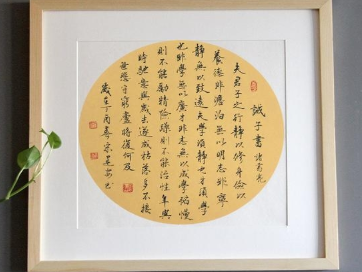 誡子書 諸葛亮
夫君子之行靜以修身儉以
養德非澹泊無以明志非寧
靜無以致遠夫學須靜也才須學
也非學無以廣才非志無以成學慆慢
則不能勵精險躁則不能治性年與
時馳意與歲去遂成枯落多不接
世悲守窮廬將復何及
歲在丁酉春